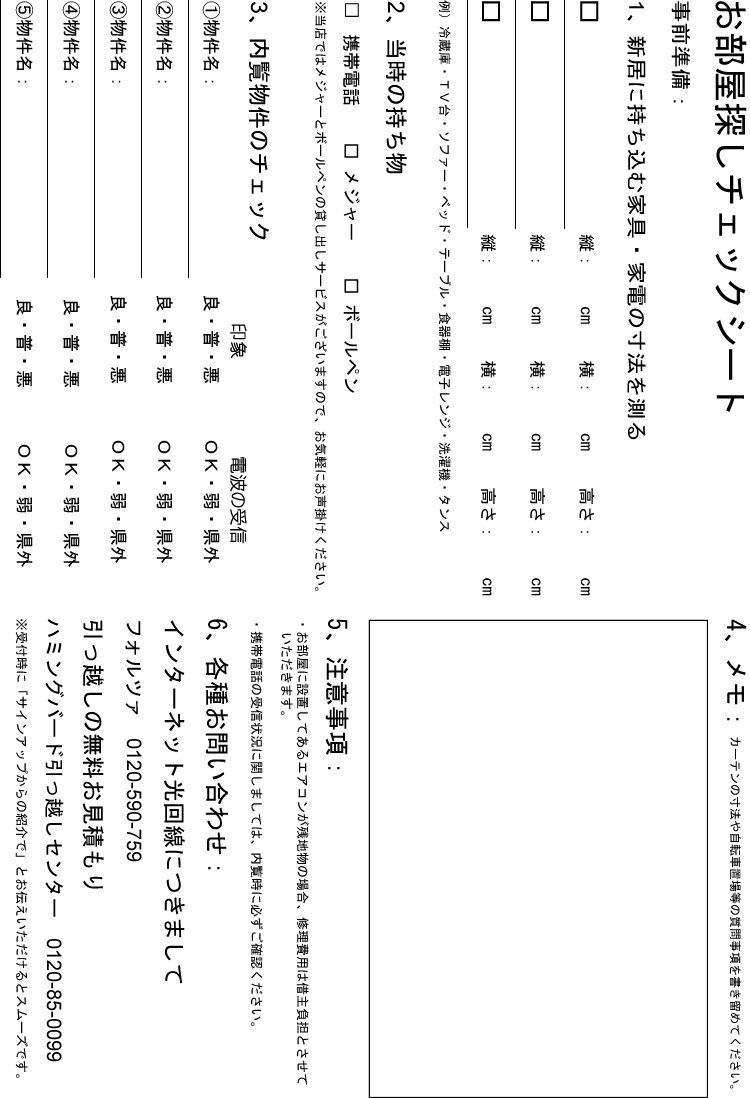 お部屋探しチェックシート
事前準備：
1、新居に持ち込む家具・家電の寸法を測る
□ 縦： cm 横： cm 高さ： cm
□ 縦： cm 横： cm 高さ： cm
□ 縦： cm 横： cm 高さ： cm
例）冷蔵庫・ＴＶ台・ソファー・ベッド・テーブル・食器棚・電子レンジ・洗濯機・タンス
2、当時の持ち物
□ 携帯電話 □ メジャー □ ボールペン
※当店ではメジャーとボールペンの貸し出しサービスがございますので、お気軽にお声掛けください。
3、内覧物件のチェック
印象 電波の受信
①物件名： 良・普・悪 ＯＫ・弱・県外
②物件名： 良・普・悪 ＯＫ・弱・県外
③物件名： 良・普・悪 ＯＫ・弱・県外
④物件名： 良・普・悪 ＯＫ・弱・県外
⑤物件名： 良・普・悪 ＯＫ・弱・県外
4、メモ：カーテンの寸法や自転車置場等の質問事項を書き留めてください。
5、注意事項：
・お部屋に設置してあるエアコンが残地物の場合、修理費用は借主負担とさせて
いただきます。
・携帯電話の受信状況に関しましては、内覧時に必ずご確認ください。
6、各種お問い合わせ：
インターネット光回線につきまして
フォルツァ 0120-590-759
引っ越しの無料お見積もり
ハミングバード引っ越しセンター 0120-85-0099
※受付時に「サインアップからの紹介で」とお伝えいただけるとスムーズです。